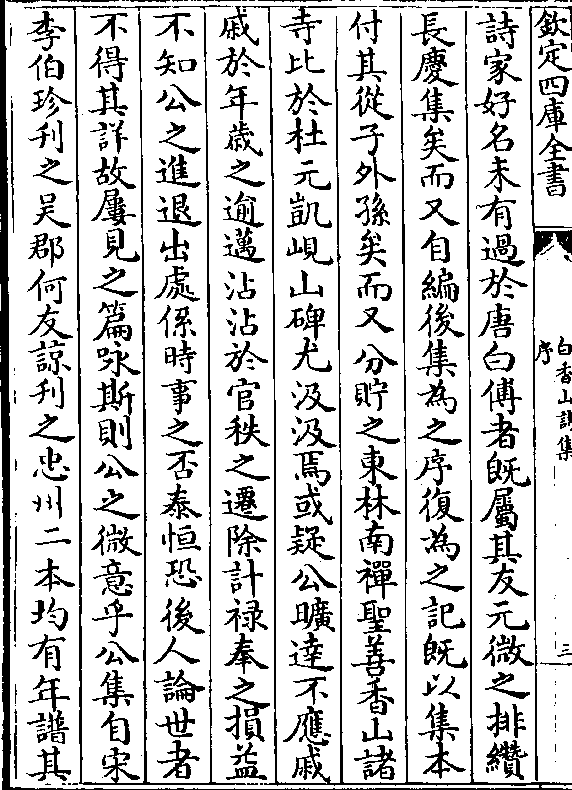 欽定四庫全書
白香山詩集
序
三
詩家好名未有過於唐白傅者既屬其友元微之排纘
長慶集矣而又自編後集為之序復為之記既以集本
付其從子外孫矣而又分貯之東林南禪聖善香山諸
寺比於杜元凱峴山碑尤汲汲焉或疑公曠達不應戚
戚於年歳之逾邁沾沾於官秩之遷除計禄奉之損益
不知公之進退出處係時事之否泰恒恐後人論世者
不得其詳故屢見之篇咏斯則公之微意乎公集自宋
李伯珍刋之吴郡何友諒刋之忠州二本均有年譜其